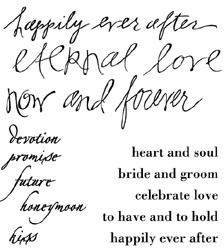 happily ever after
eternal love
now and forever
devotion
promise
future
honeymoon
kiss
heart and soul
bride and groom
celebrate love
to have and to hold
happily ever after